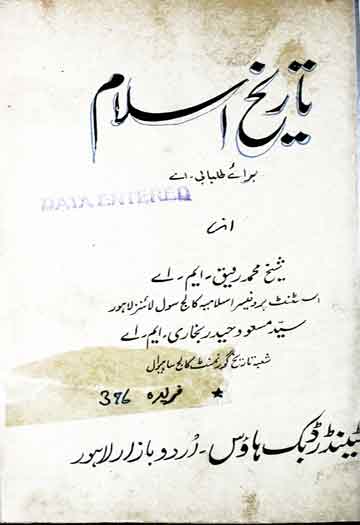 تاریخ اسلام
برائے طلبا بی۔ اے
DATA ENTERED
از
شیخ محمد رفیق۔ ایم۔ اے
اسسٹنٹ پروفیسر اسلامیہ کالج سول لائنز لاہور
سید مسعود حیدر بخاری۔ ایم۔ اے
شعبہ تاریخ گورنمنٹ کالج ساہیوال
★ 386
بک ہاؤس۔ اردو بازار لاہور